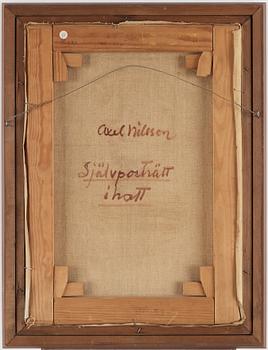 Axel Nilsson
Självporträtt
i hatt